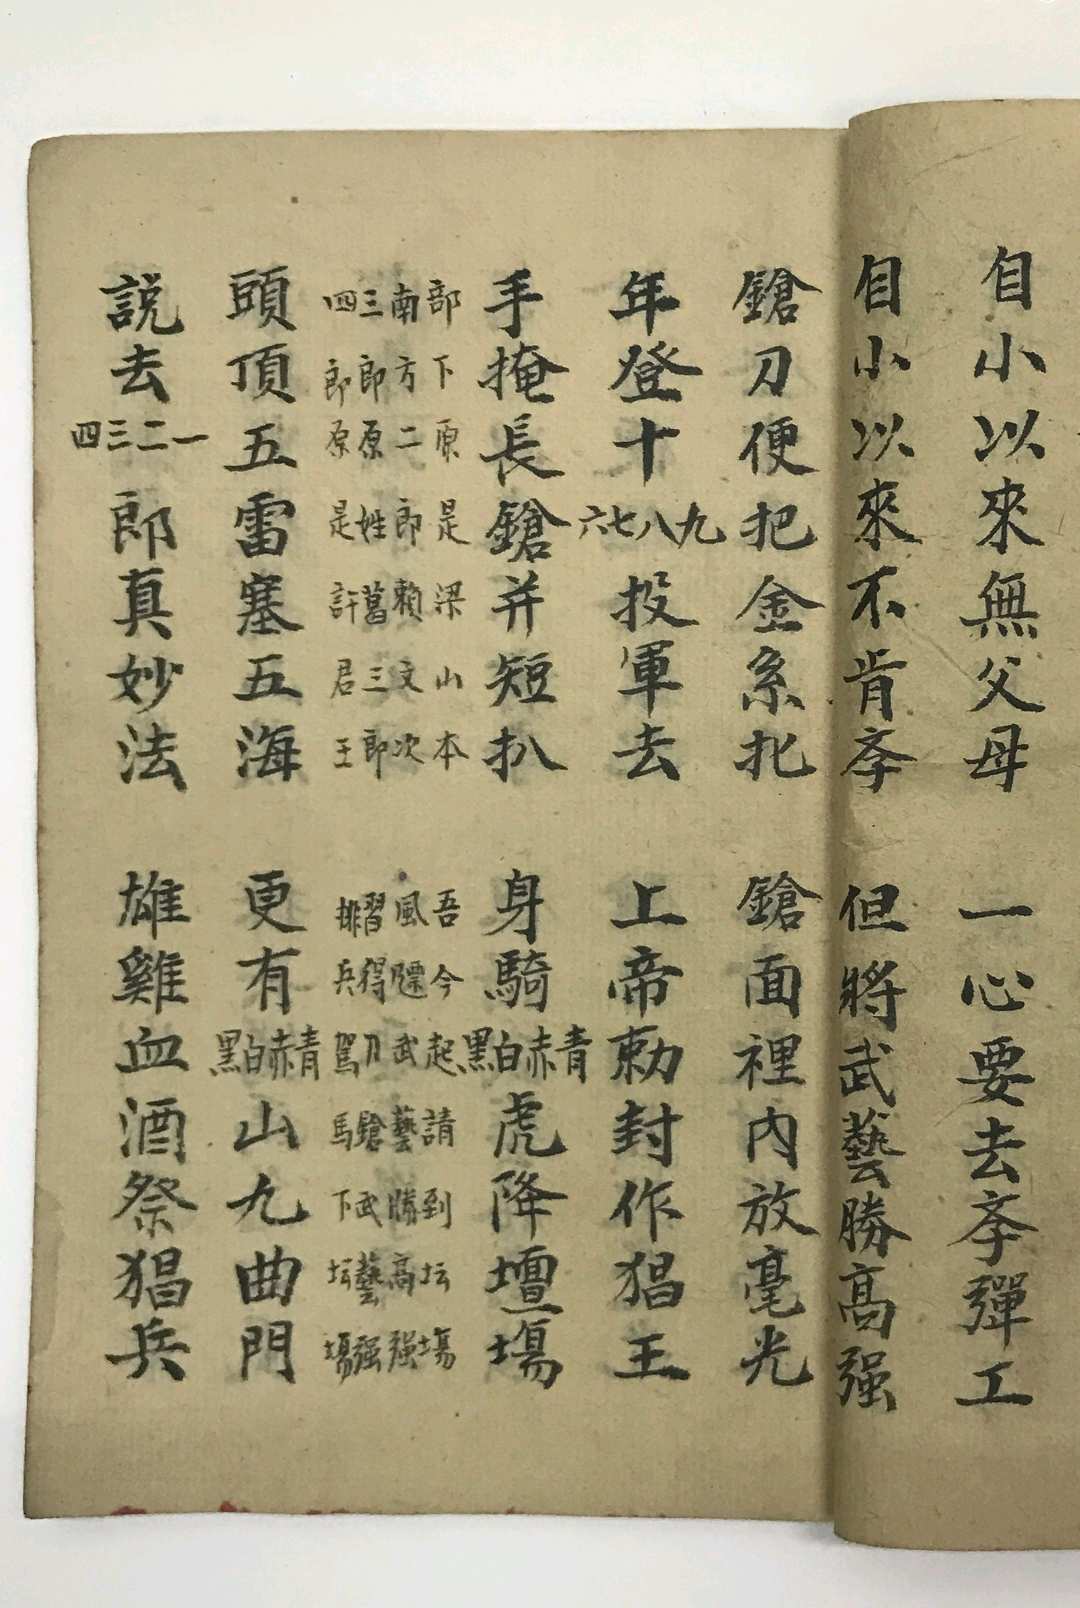 自小以來無父母　一心要去斈彈工
自小以來不肯斈　但將武藝勝高强
鎗刀便把金系扎　鎗面裡內放毫光
年登十九八七六投軍去　上帝勅封作猖王
手掩長鎗并短扒　身騎青赤白黑虎降壇塲
部下原是梁山本　吾今起請到坛塲
南方二郎賴文次　風飃武藝勝高强
三郎原姓葛三郎　習得刀鎗武藝强
四郎原是許君王　排兵駕馬下坛塲
頭頂五雷塞五海　更有青赤白黑山九曲門
説去一二三四郎真妙法　雄雞血酒祭猖兵